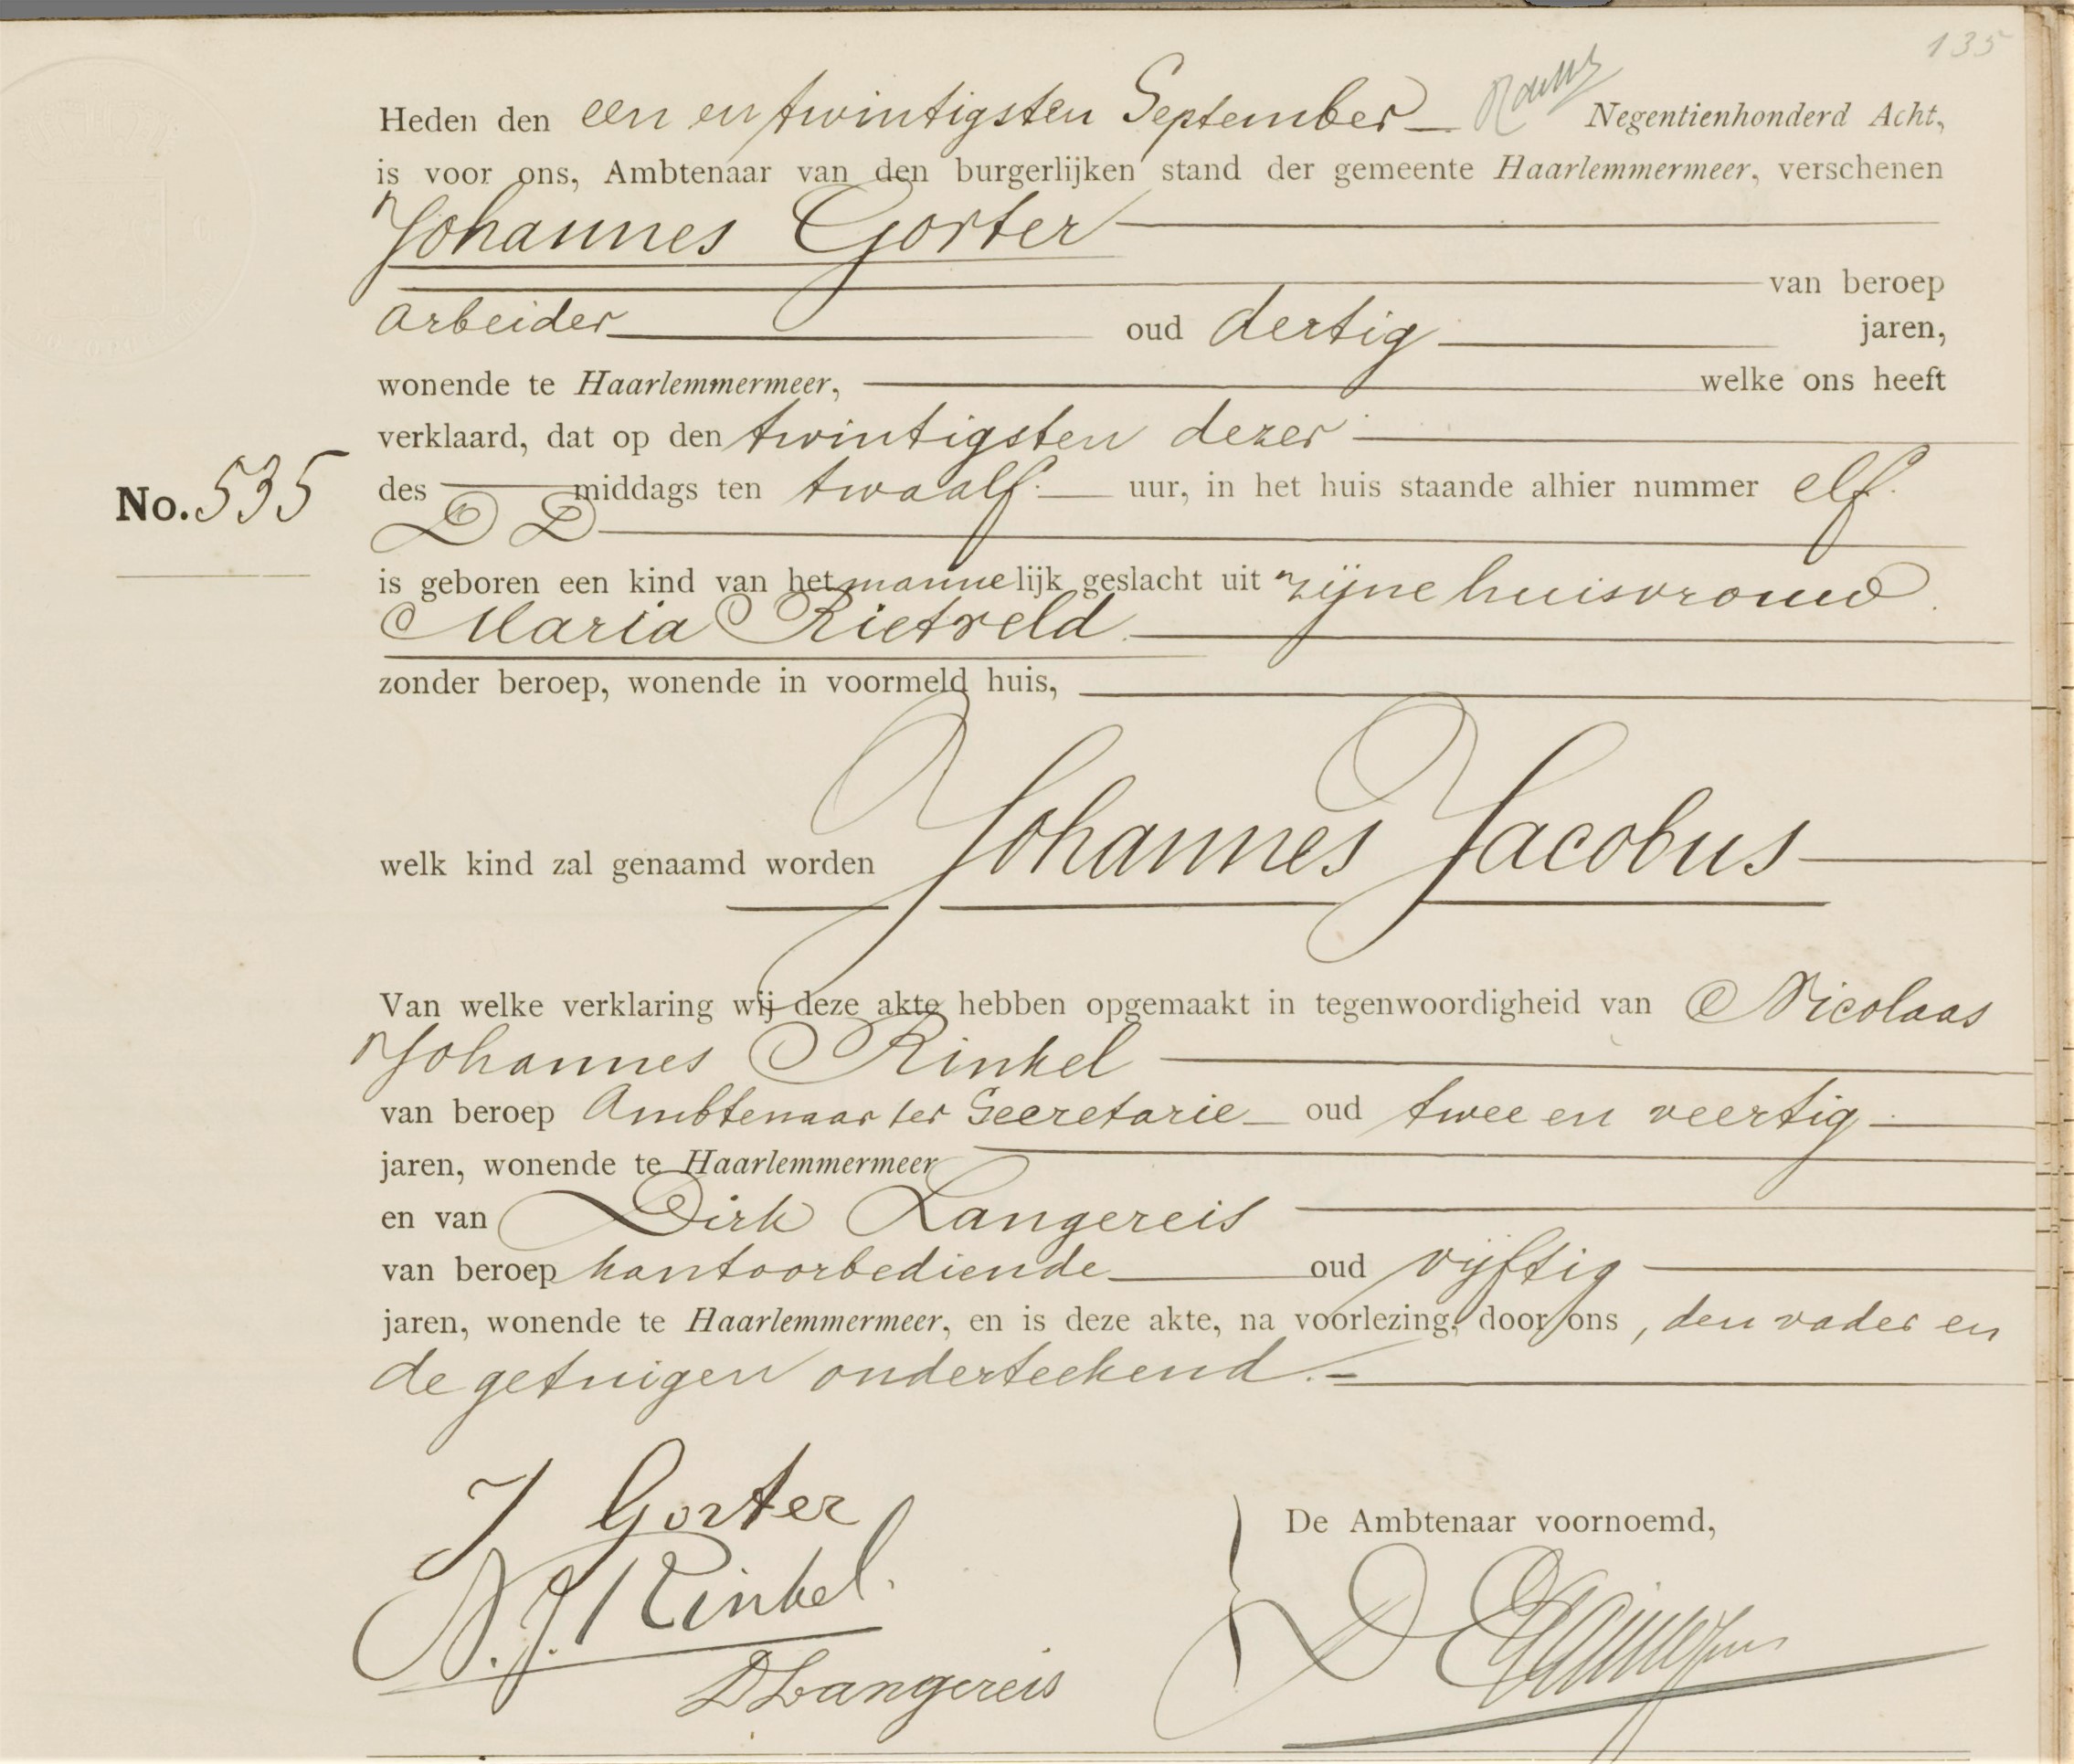 135
Heden den een en twintigsten September Negentienhonderd Acht,
is voor ons, Ambtenaar van den burgerlijken stand der gemeente Haarlemmermeer, verschenen
Johannes Gorter
van beroep
Arbeider oud dertig jaren,
wonende te Haarlemmermeer, welke ons heeft
verklaard, dat op den twintigsten dezer
No. 535 des middags ten twaalf uur, in het huis staande alhier nummer elf
D D
is geboren een kind van het mannelijk geslacht uit zijne huisvrouw
Maria Rietveld
zonder beroep, wonende in voormeld huis,
welk kind zal genaamd worden Johannes Jacobus
Van welke verklaring wij deze akte hebben opgemaakt in tegenwoordigheid van Nicolaas
Johannes Rinkel
van beroep Ambtenaar ter Secretarie oud twee en veertig
jaren, wonende te Haarlemmermeer
en van Dirk Langereis
van beroep kantoorbediende oud vijftig
jaren, wonende te Haarlemmermeer, en is deze akte, na voorlezing, door ons, den vader en
de getuigen onderteekend.
J Gorter
De Ambtenaar voornoemd,
N. J. Rinkel.
D Langereis